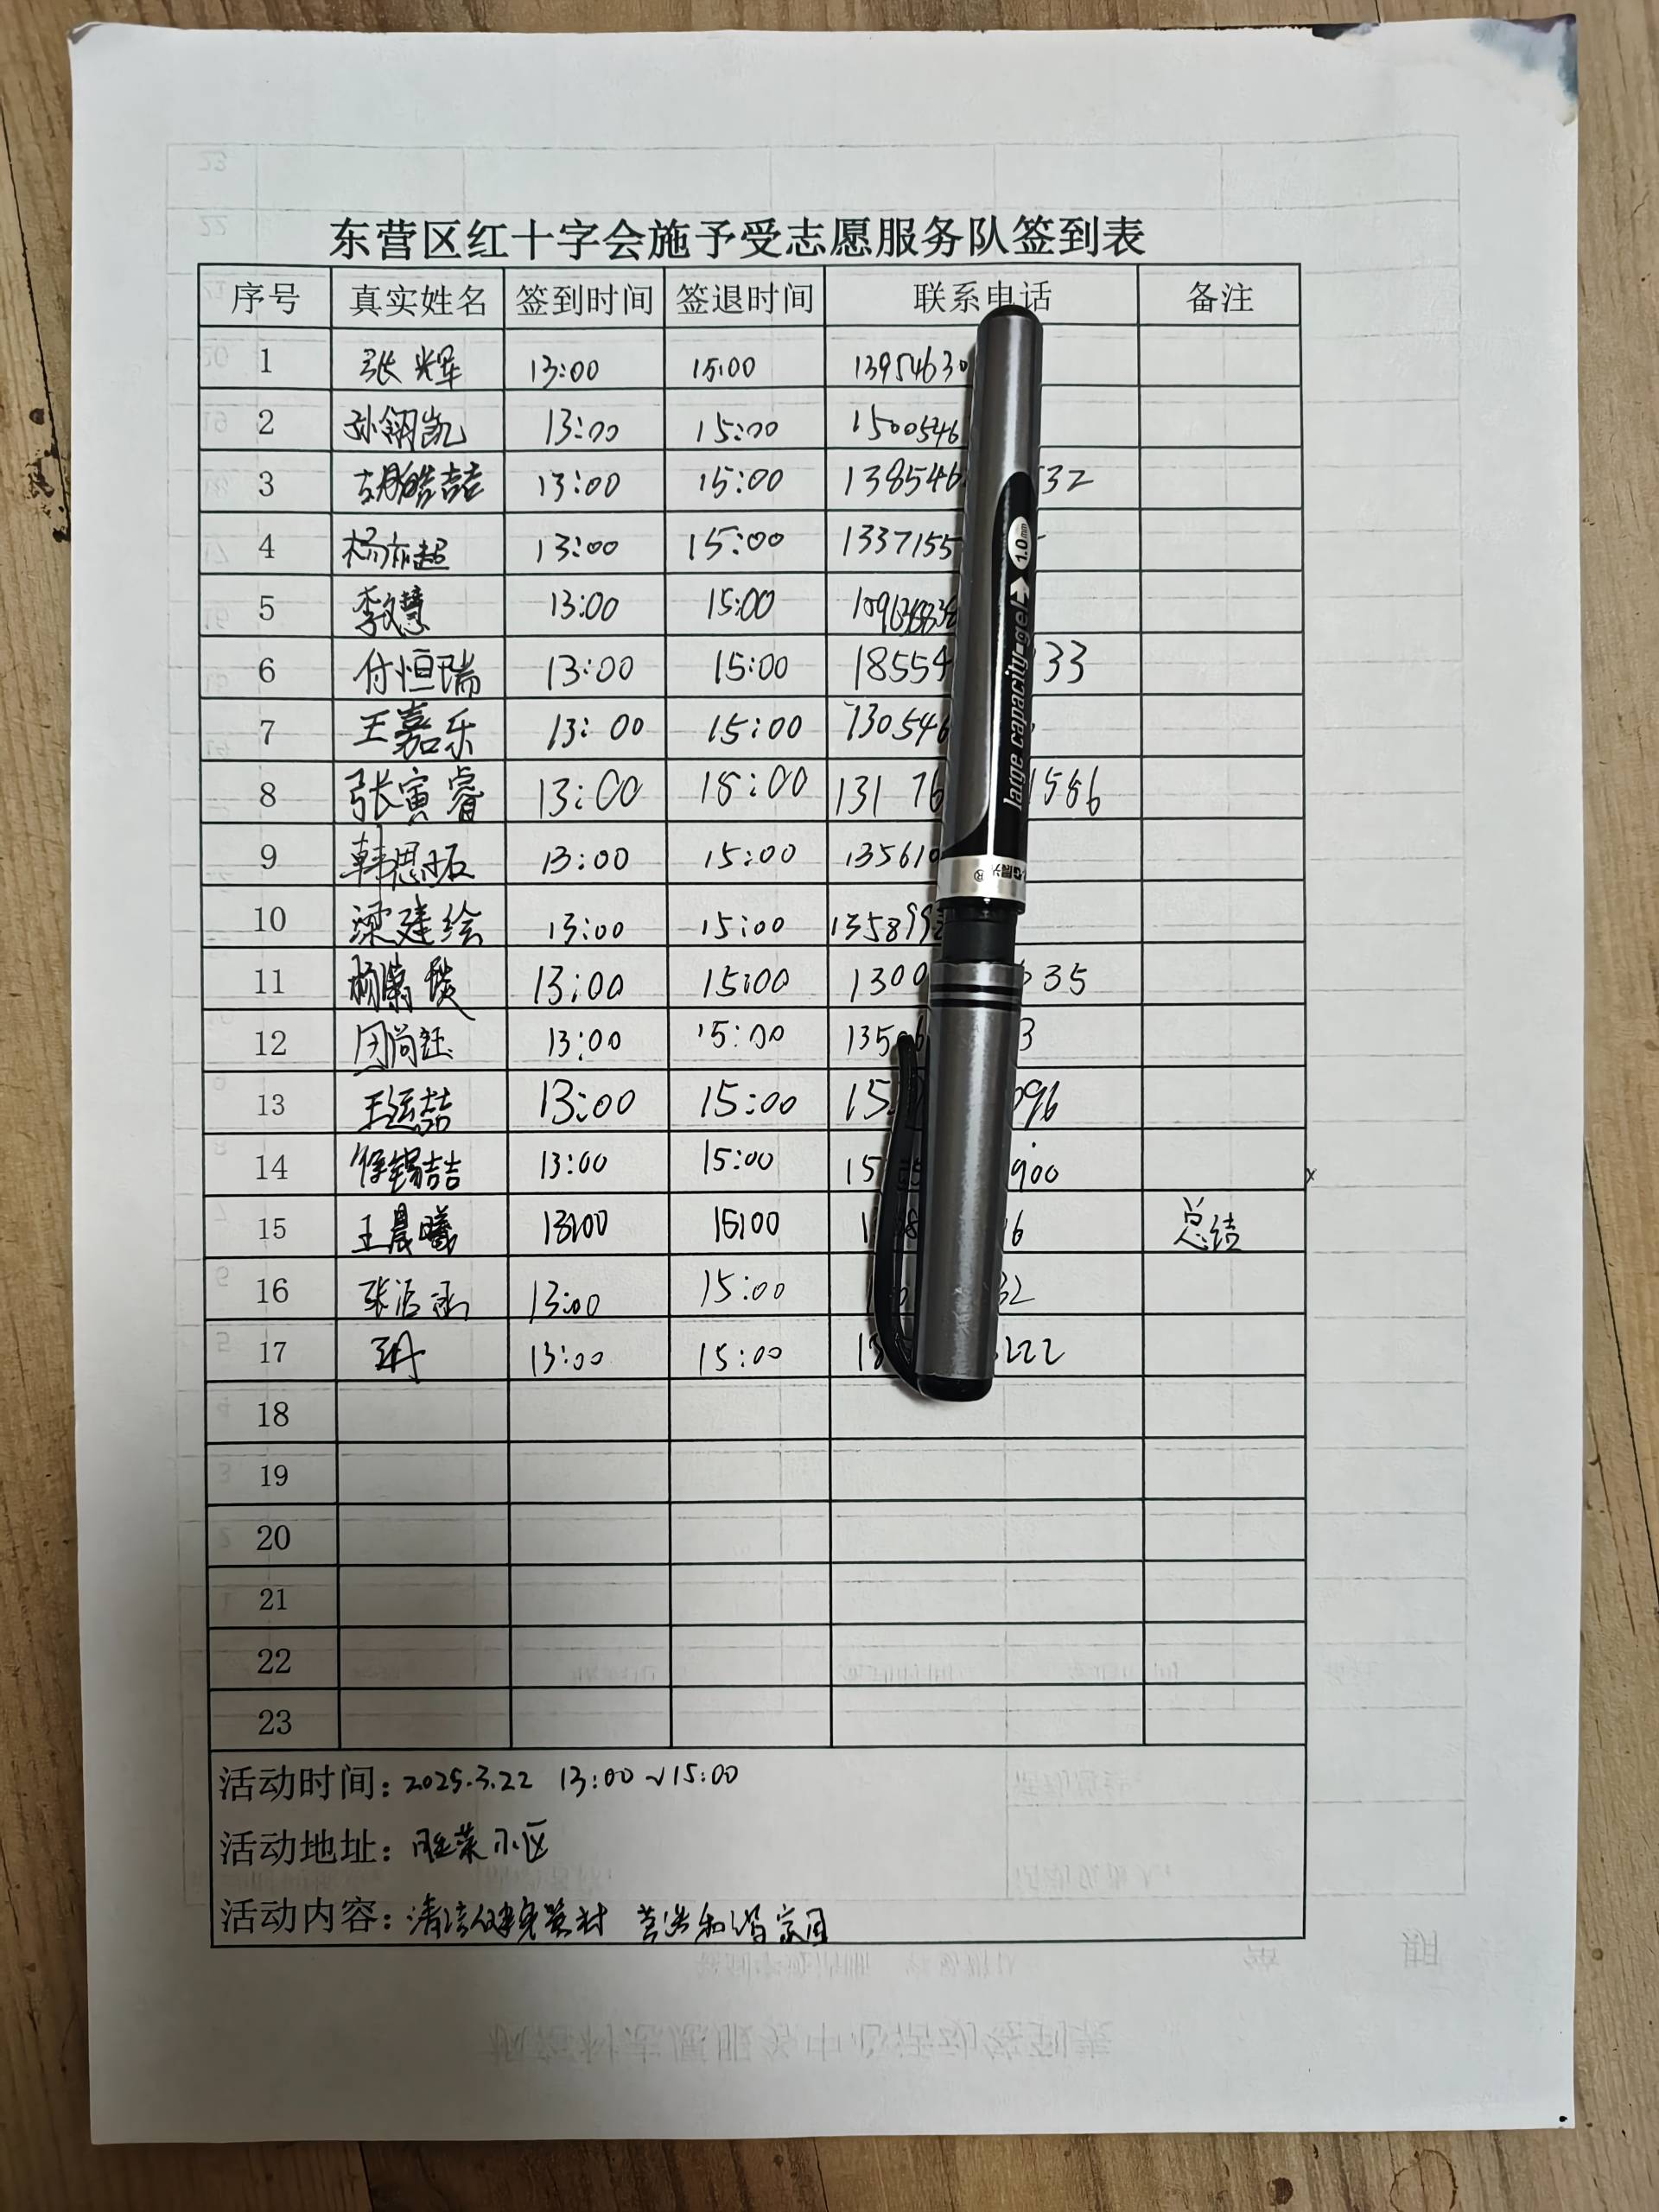 东营区红十字会施予受志愿服务队签到表
序号 真实姓名 签到时间 签退时间 联系电话 备注
1 张辉 13:00 15:00 13954630
2 孙翎凯 13:00 15:00 1500546
3 胡皓喆 13:00 15:00 138546 532
4 杨亦超 13:00 15:00 1337155
5 李文慧 13:00 15:00
6 付恒瑞 13:00 15:00 18554 33
7 王嘉乐 13:00 15:00 130546
8 张寅睿 13:00 15:00 131 76 1586
9 韩思拓 13:00 15:00 135610
10 梁建绘 13:00 15:00 135899
11 杨 13:00 15:00 1300 35
12 周尚钰 13:00 15:00 135 3
13 王运喆 13:00 15:00 15 096
14 徐锡喆 13:00 15:00 15 900
15 王晨曦 13:00 15:00 1 6 总结
16 张洁涵 13:00 15:00 32
17 13:00 15:00 222
18
19
20
21
22
23
活动时间: 2025.3.22 13:00~15:00
活动地址: 胜莱小区
活动内容: 清洁健身器材 营造和谐家园
large capacity-gel 1.0mm